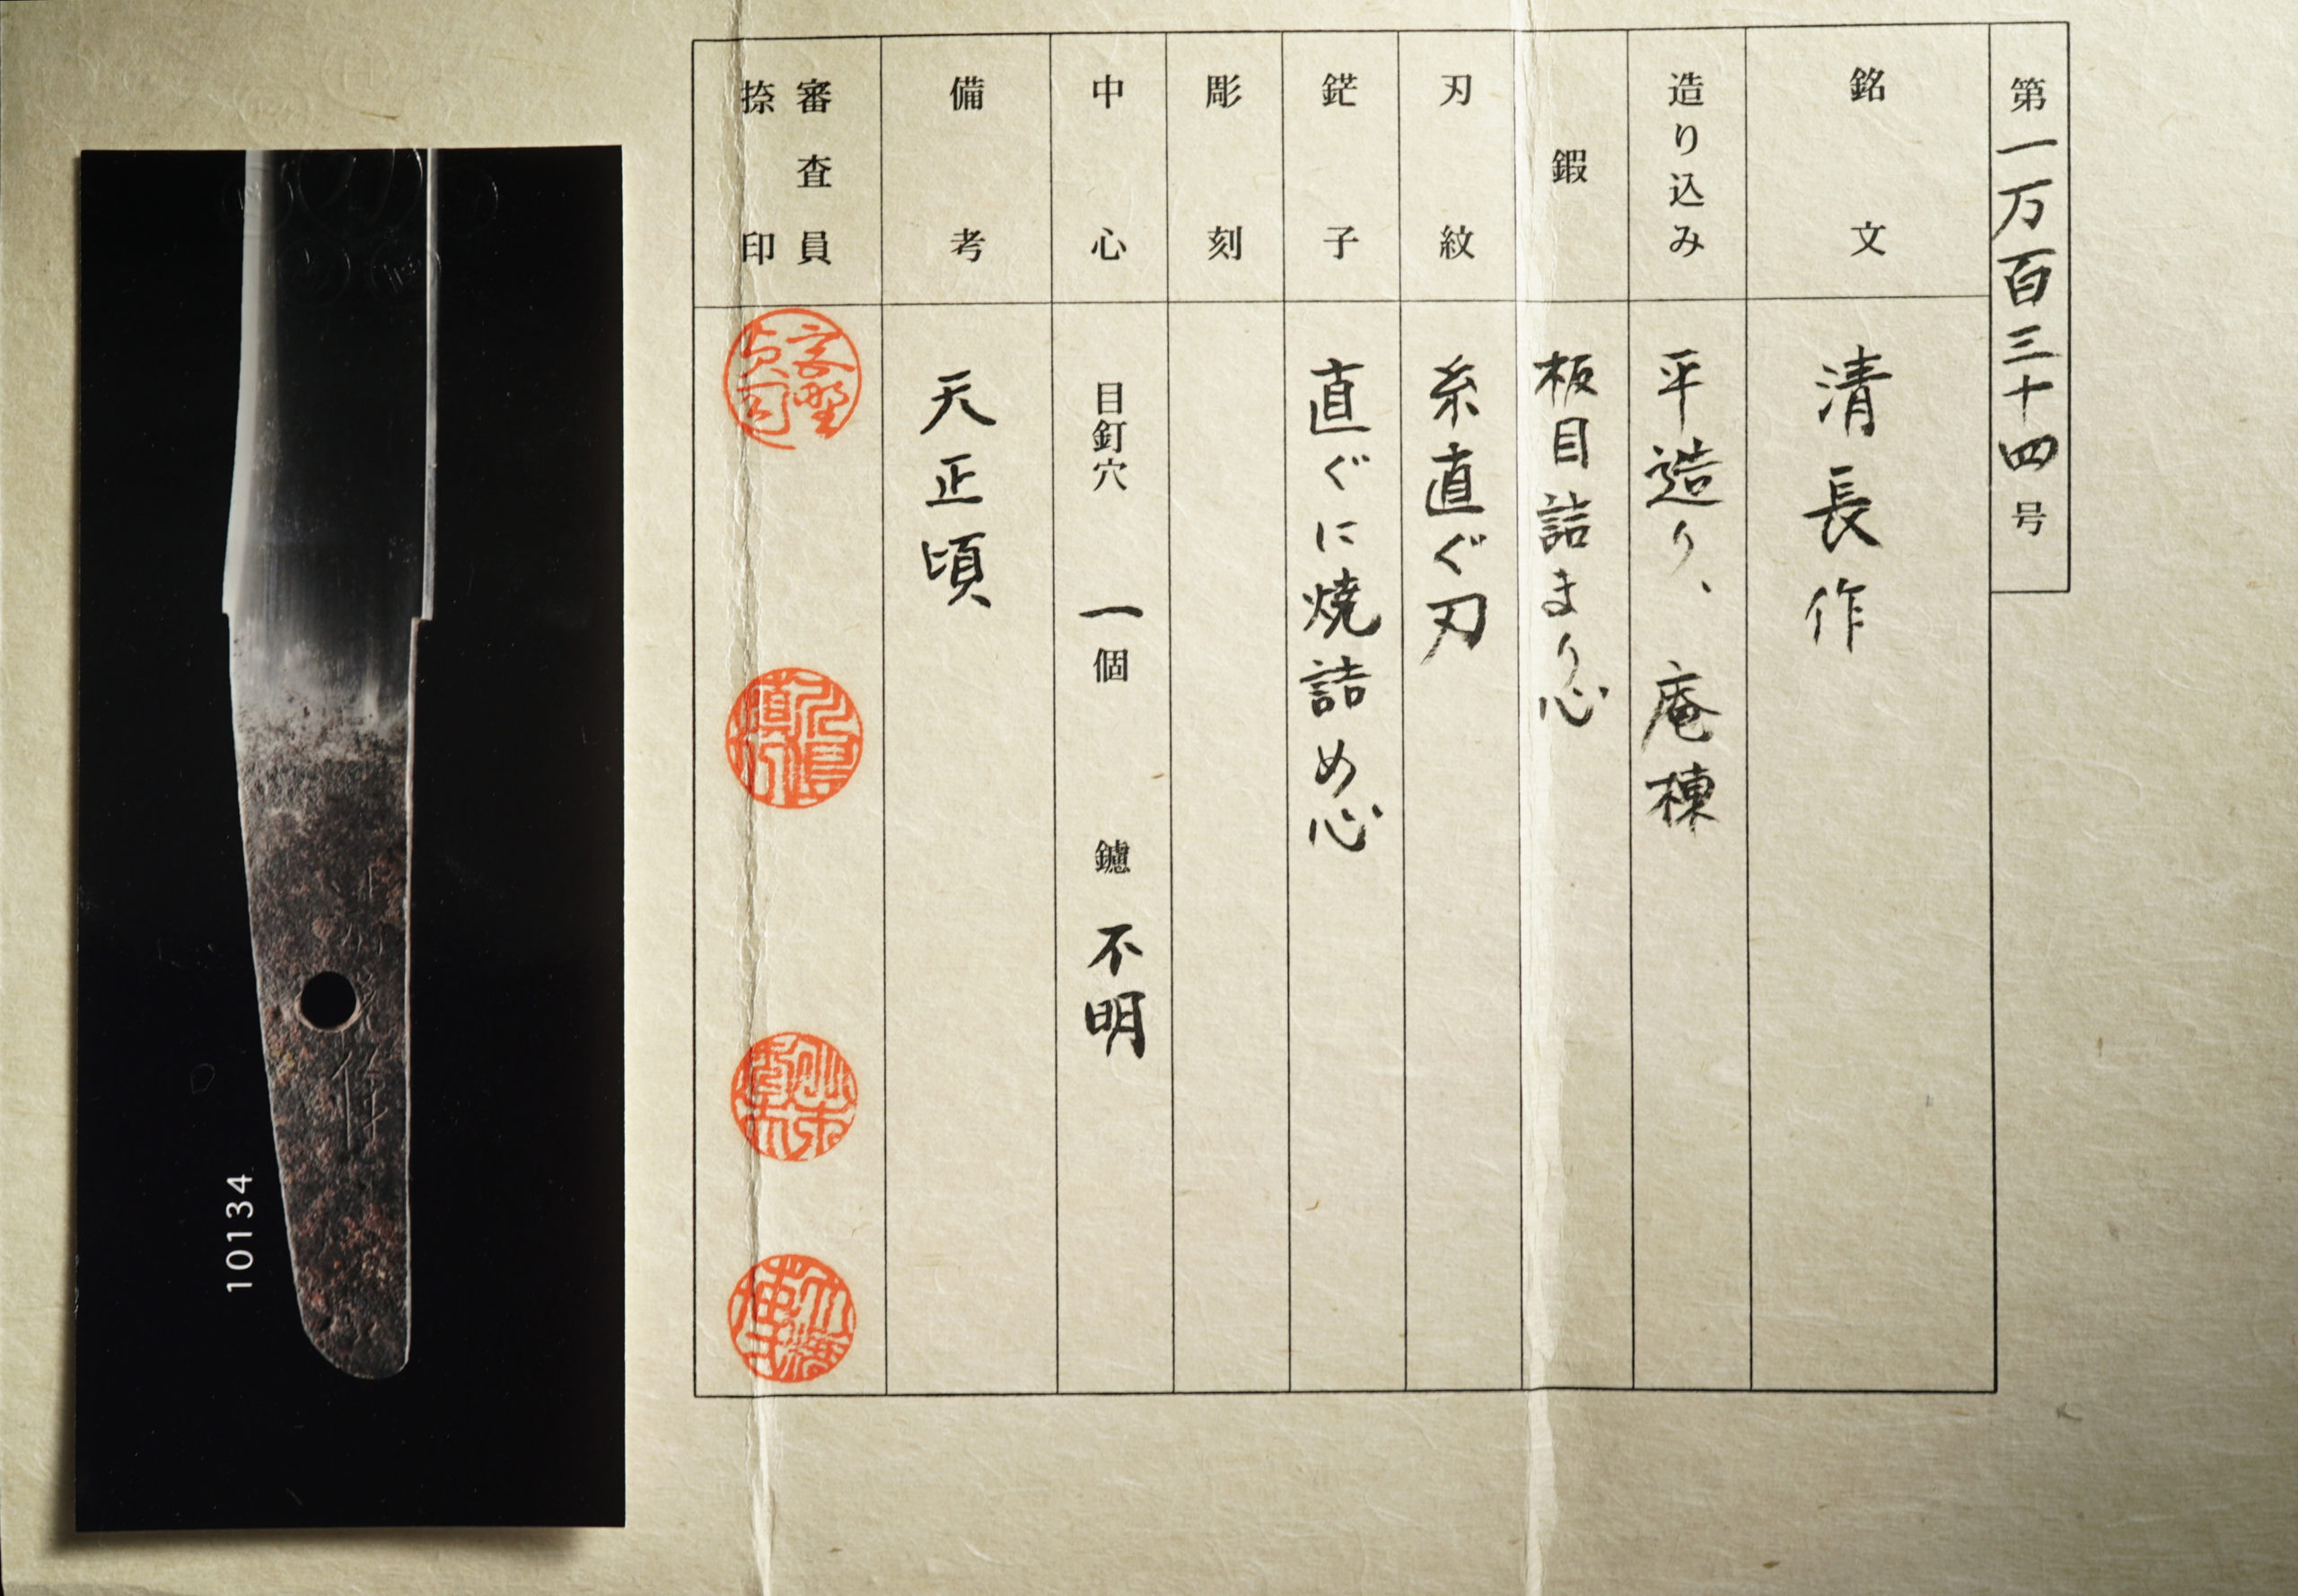 第一万百三十四号
銘文
清長作
造り込み
平造り、庵棟
鍜
板目詰まり心
刃紋
糸直ぐ刃
鋩子
直ぐに焼詰め心
彫刻
中心
目釘穴 一個 鑢 不明
備考
天正頃
審査員
捺印
作
10134